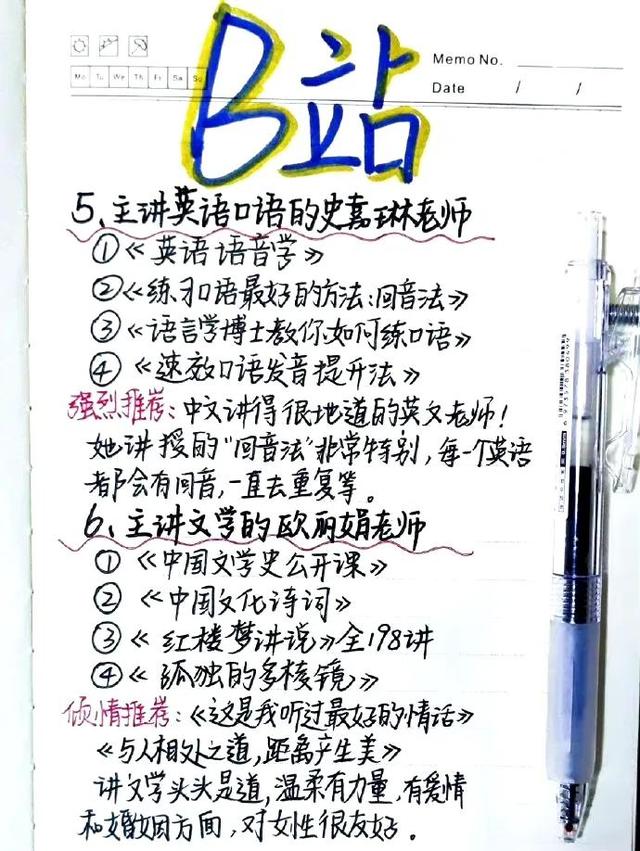 B站
Memo No.
Mo Tu We Th Fr Sa Su
Date / /
5、主讲英语口语的史嘉琳老师
①《英语语音学》
②《练习口语最好的方法:回音法》
③《语言学博士教你如何练口语》
④《速效口语发音提升法》
强烈推荐:中文讲得很地道的英文老师!
她讲授的"回音法"非常特别,每一个英语
都会有回音,一直去重复等。
6、主讲文学的欧丽娟老师
①《中国文学史公开课》
②《中国文化诗词》
③《红楼梦讲说》全198讲
④《孤独的多棱镜》
倾情推荐:《这是我听过最好的情话》
《与人相处之道,距离产生美》
讲文学头头是道,温柔有力量,有爱情
和婚姻方面,对女性很友好。